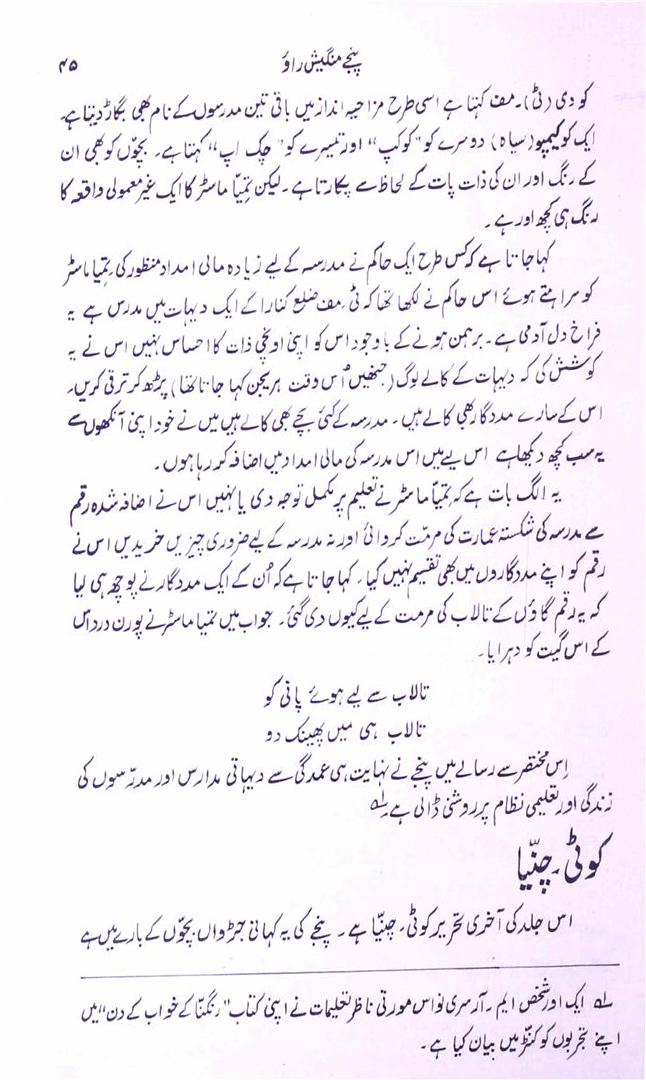 پنجے منگیش راؤ ۴۵
کو دی (ٹی)۔ مف کہتا ہے اسی طرح مزاحیہ انداز میں باقی تین مدرسوں کے نام بھی بگاڑ دیتا ہے۔
ایک کو کیمپو (سیاہ) دوسرے کو "کوکپ" اور تیسرے کو "چک اپ" کہتا ہے۔ بچوں کو بھی ان
کے رنگ اور ان کی ذات پات کے لحاظ سے پکارتا ہے۔ لیکن تمیّا ماسٹر کا ایک غیر معمولی واقعہ کا
رنگ ہی کچھ اور ہے۔
کہا جاتا ہے کہ کس طرح ایک حاکم نے مدرسہ کے لیے زیادہ مالی امداد منظور کی۔ تمیا ماسٹر
کو سراہتے ہوئے اس حاکم نے لکھا تھا کہ ٹی۔ مف ضلع کنارا کے ایک دیہات میں مدرس ہے یہ
فراخ دل آدمی ہے۔ برہمن ہونے کے باوجود اس کو اپنی اونچی ذات کا احساس نہیں اس نے یہ
کوشش کی کہ دیہات کے کالے لوگ (جنھیں اُس وقت ہریجن کہا جاتا تھا) پڑھ کر ترقی کریں۔
اس کے سارے مددگار بھی کالے ہیں۔ مدرسہ کے کئی بچے بھی کالے ہیں میں نے خود اپنی آنکھوں سے
یہ سب کچھ دیکھا ہے اس لیے میں اس مدرسہ کی مالی امداد میں اضافہ کر رہا ہوں۔
یہ الگ بات ہے کہ تمیّا ماسٹر نے تعلیم پر مکمل توجہ دی یا نہیں اس نے اضافہ شدہ رقم
سے مدرسہ کی شکستہ عمارت کی مرمّت کروائی اور نہ مدرسہ کے لیے ضروری چیزیں خریدیں اس نے
رقم کو اپنے مددگاروں میں بھی تقسیم نہیں کیا۔ کہا جاتا ہے کہ اُن کے ایک مددگار نے پوچھ ہی لیا
کہ یہ رقم گاؤں کے تالاب کی مرمت کے لیے کیوں دی گئی۔ جواب میں تمیا ماسٹر نے پورن درداس
کے اس گیت کو دہرایا۔
تالاب سے لیے ہوئے پانی کو
تالاب ہی میں پھینک دو
اِس مختصر سے رسالے میں پنجے نے نہایت ہی عمدگی سے دیہاتی مدارس اور مدرّسوں کی
زندگی اور تعلیمی نظام پر روشنی ڈالی ہے۔ لہ
کوٹی۔ چنّیا
اس جلد کی آخری تحریر کوٹی۔ چنیّا ہے۔ پنجے کی یہ کہانی جڑواں بچّوں کے بارے میں ہے
لہ ایک اور شخص ایم۔ آر سری نواس مورتی ناظر تعلیمات نے اپنی کتاب "رنگنّا کے خواب کے دن" میں
اپنے تجربوں کو کنّڑ میں بیان کیا ہے۔